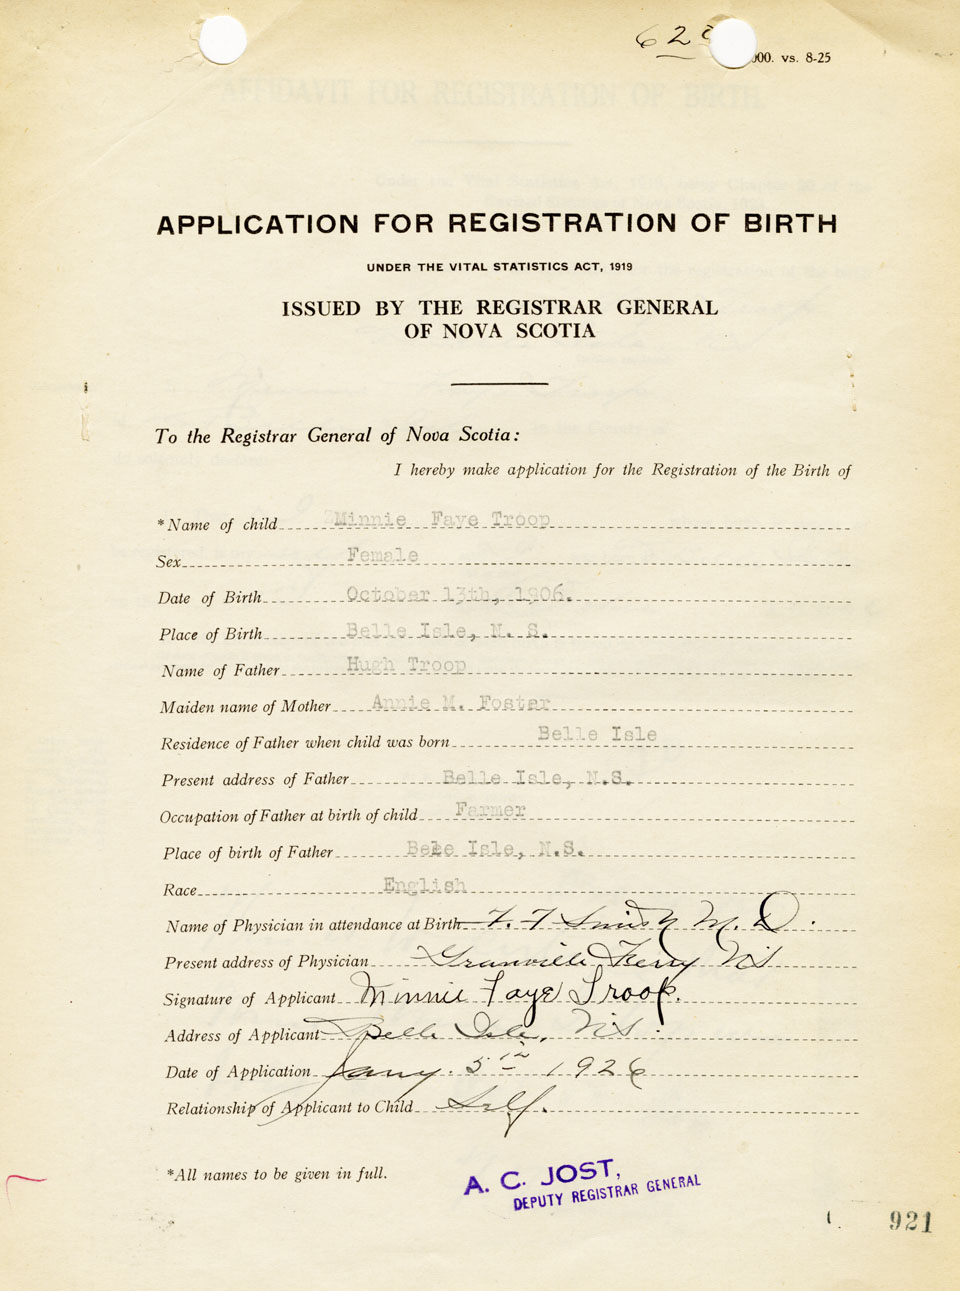 62
000. vs. 8-25
APPLICATION FOR REGISTRATION OF BIRTH
UNDER THE VITAL STATISTICS ACT, 1919
ISSUED BY THE REGISTRAR GENERAL
OF NOVA SCOTIA
To the Registrar General of Nova Scotia:
I hereby make application for the Registration of the Birth of
*Name of child Minnie Faye Troop
Sex Female
Date of Birth October 13th, 1906.
Place of Birth Belle Isle, N. S.
Name of Father Hugh Troop
Maiden name of Mother Annie M. Foster
Residence of Father when child was born Belle Isle
Present address of Father Belle Isle, N.S.
Occupation of Father at birth of child Farmer
Place of birth of Father Bele Isle, N.S.
Race English
Name of Physician in attendance at Birth F. F Smith M. D.
Present address of Physician Granville Ferry NS
Signature of Applicant Minnie Faye Troop.
Address of Applicant Belle Isle, NS.
Date of Application Jany. 5th 1926
Relationship of Applicant to Child Self.
*All names to be given in full.
A. C. JOST,
DEPUTY REGISTRAR GENERAL
921